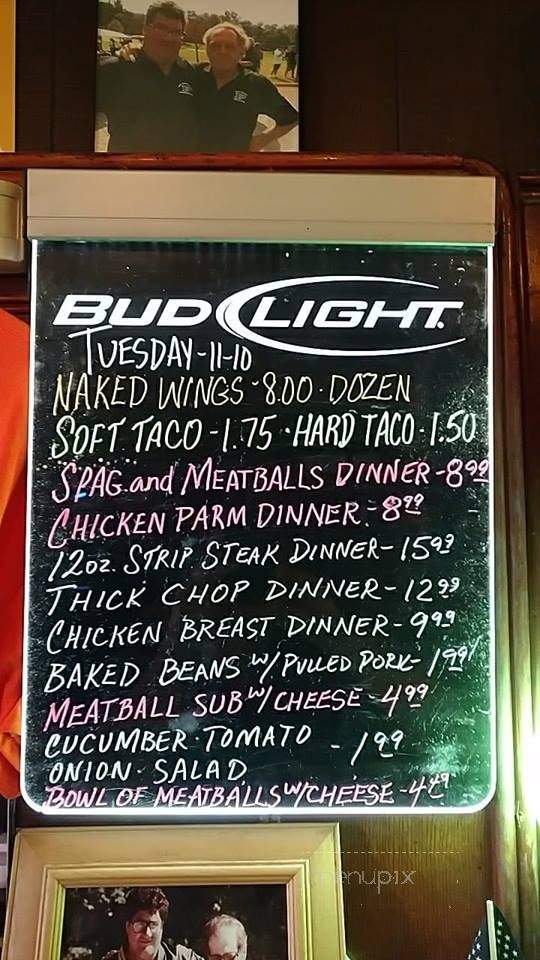 BUD LIGHT
TUESDAY-11-10
NAKED WINGS-8.00-DOZEN
SOFT TACO-1.75-HARD TACO-1.50
SPAG.and MEATBALLS DINNER-8.99
CHICKEN PARM DINNER-8.99
12oz. STRIP STEAK DINNER-15.99
THICK CHOP DINNER-12.99
CHICKEN BREAST DINNER-9.99
BAKED BEANS W/PULLED PORK-1.99
MEATBALL SUB W/CHEESE-4.99
CUCUMBER-TOMATO -1.99
ONION-SALAD
BOWL OF MEATBALLS W/CHEESE-4.49
menupix